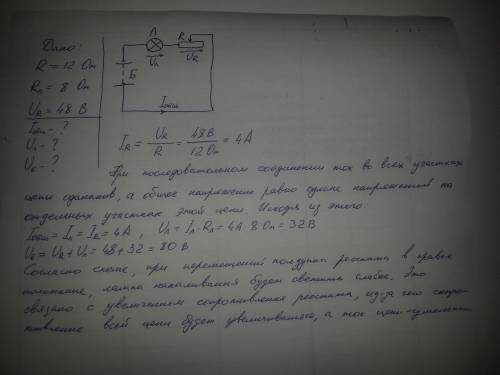 Дано:
R = 12 Ом
Rл = 8 Ом
UR = 48 В
Iобщ - ?
Uл - ?
Uб - ?
Л
R
Б
Uл
UR
Iобщ
IR = UR / R = 48В / 12 Ом = 4А
При последовательном соединении ток во всех участках
цепи одинаков, а общее напряжение равно сумме напряжений на
отдельных участках этой цепи. Исходя из этого:
Iобщ = Iл = IR = 4А, Uл = Iл · Rл = 4А · 8 Ом = 32 В
Uб = UR + Uл = 48 + 32 = 80 В
Согласно схеме, при перемещении ползунка реостата в правое
положение, лампа накаливания будет светить слабее. Это
связано с увеличением сопротивления реостата, из-за чего сопро-
тивление всей цепи будет увеличиваться, а ток цепи - уменьшат